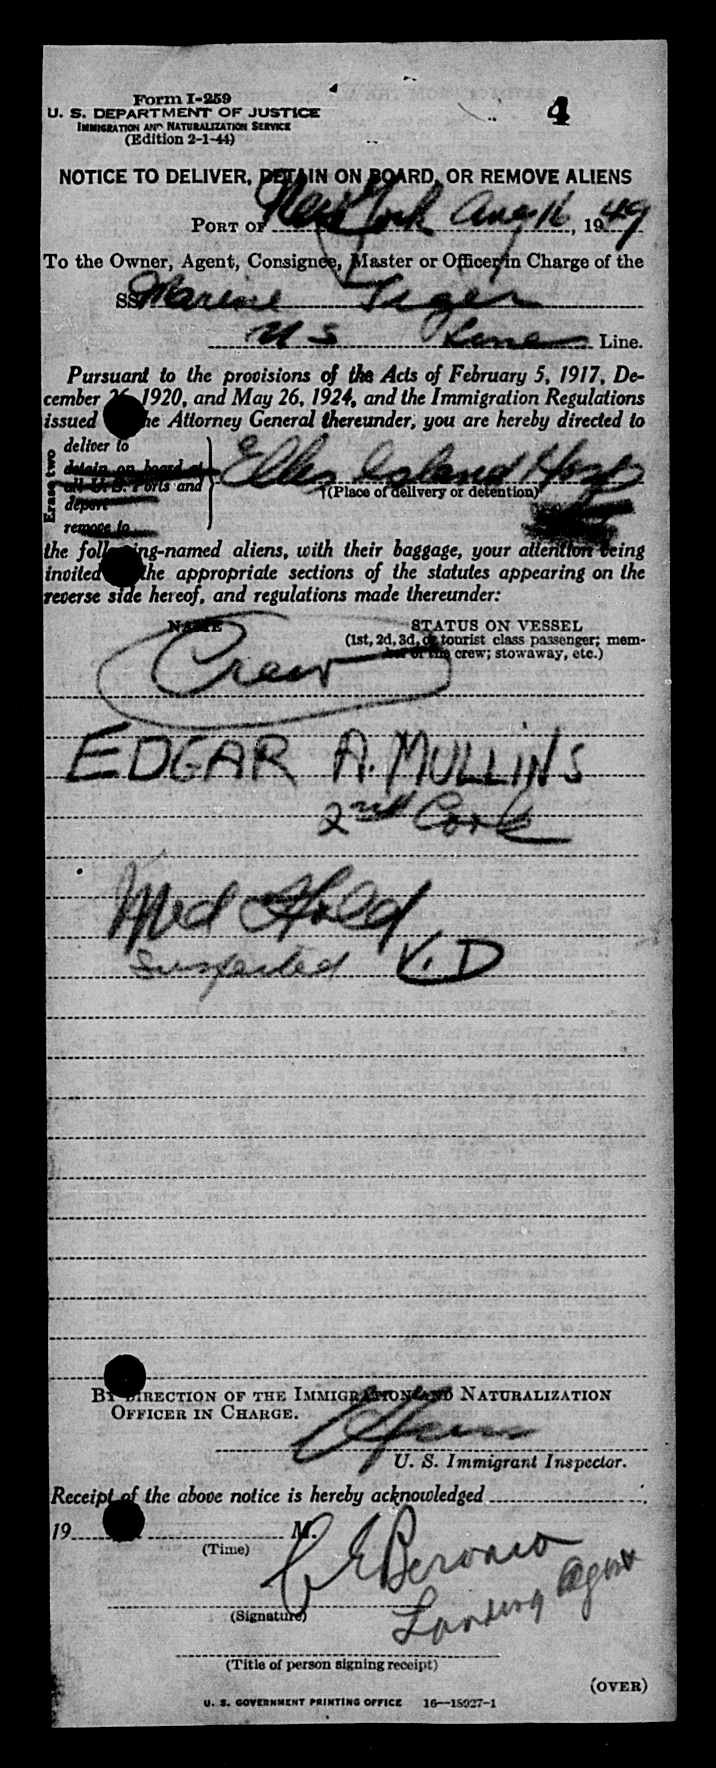 4
Form I-259
U. S. DEPARTMENT OF JUSTICE
IMMIGRATION AND NATURALIZATION SERVICE
(Edition 2-1-44)
NOTICE TO DELIVER, DETAIN ON BOARD, OR REMOVE ALIENS
PORT OF New York Aug 16, 1949
To the Owner, Agent, Consignee, Master or Officer in Charge of the
SS Marine Tiger
U S Lines Line.
Pursuant to the provisions of the Acts of February 5, 1917, De-
cember 26, 1920, and May 26, 1924, and the Immigration Regulations
issued the Attorney General thereunder, you are hereby directed to
Erase two
deliver to
detain on board at
all U. S. Ports and
deport
remove to
Ellis Island Hosp
(Place of delivery or detention)
the following-named aliens, with their baggage, your attention being
invited the appropriate sections of the statutes appearing on the
reverse side hereof, and regulations made thereunder:
NAME STATUS ON VESSEL
(1st, 2d, 3d, or tourist class passenger; mem-
ber of the crew; stowaway, etc.)
Crew
EDGAR A. MULLINS
2nd Cook
Med Hold
Suspected V. D
BY DIRECTION OF THE IMMIGRATION AND NATURALIZATION
OFFICER IN CHARGE.
U. S. Immigrant Inspector.
Receipt of the above notice is hereby acknowledged
19 M.
(Time)
Landing Agent
(Signature)
(Title of person signing receipt)
(OVER)
U. S. GOVERNMENT PRINTING OFFICE 16—18927-1